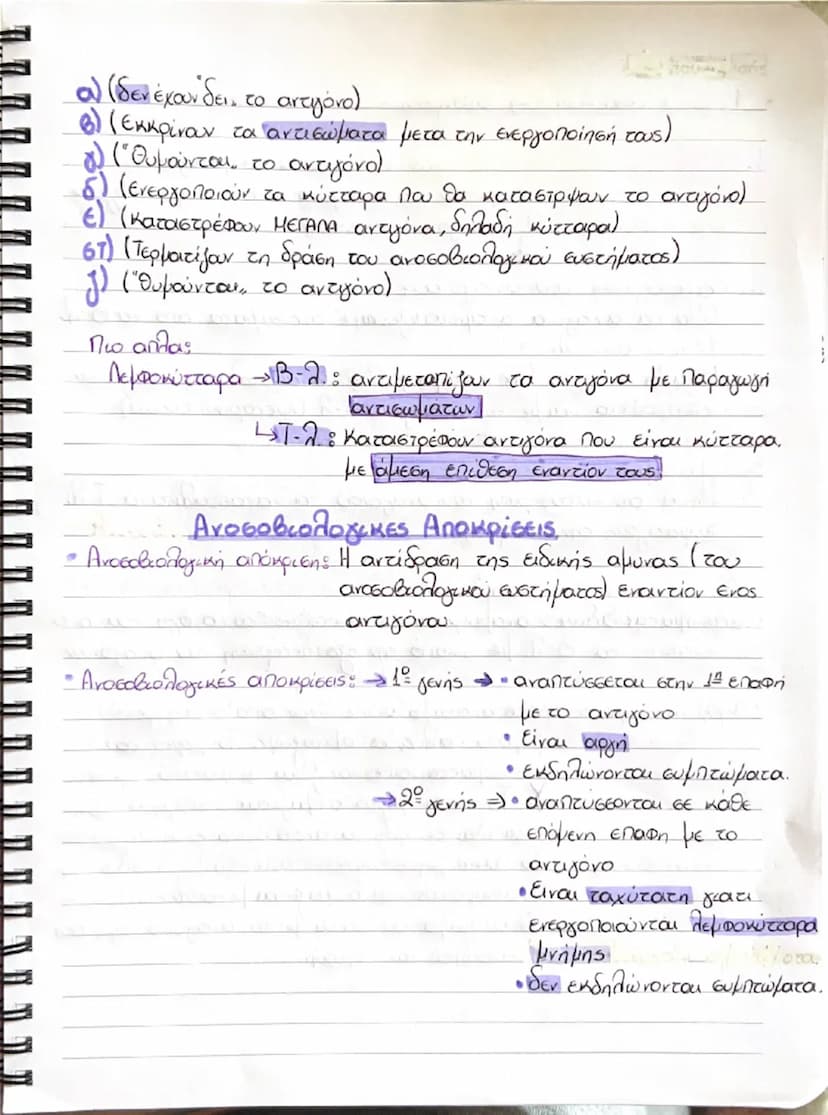 α) (δεν έχουν "δει" το αντιγόνο)
β) (Εκκρίνουν τα αντισώματα μετα την ενεργοποίησή τους)
γ) ("Θυμούνται" το αντιγόνο)
δ) (Ενεργοποιούν τα κύτταρα που θα καταστρψουν το αντιγόνο)
ε) (Καταστρέφουν ΜΕΓΑΛΑ αντιγόνα, δηλαδή κύτταρα)
στ) (Τερματίζουν τη δράση του ανοσοβιολογικού συστήματος)
ζ) ("Θυμούνται" το αντιγόνο)
Πιο απλα:
Λεμφοκύτταρα → Β-λ.: αντιμετωπίζουν τα αντιγόνα με παραγωγή
αντισωμάτων
↳ Τ-λ.: Καταστρέφουν αντιγόνα που είναι κύτταρα.
με άμεση επίθεση εναντίον τους.
Ανοσοβιολογικες Αποκρίσεις
• Ανοσοβιολογική απόκριση: Η αντίδραση της ειδικής αμυνας (του
ανοσοβιολογικού συστήματος) εναντίον ενος
αντιγόνου
• Ανοσοβιολογικές αποκρίσεις: → 1ο γενής → • αναπτύσσεται στην 1η επαφή
με το αντιγόνο
• Είναι αργή
• εκδηλώνονται συμπτώματα.
→ 2ο γενής ⇒ • αναπτύσσονται σε κάθε
επόμενη επαφη με το
αντιγόνο
• Είναι ταχύτατη γιατι
ενεργοποιούνται λεμφοκύτταρα
μνήμης
• δεν εκδηλώνονται συμπτώματα.